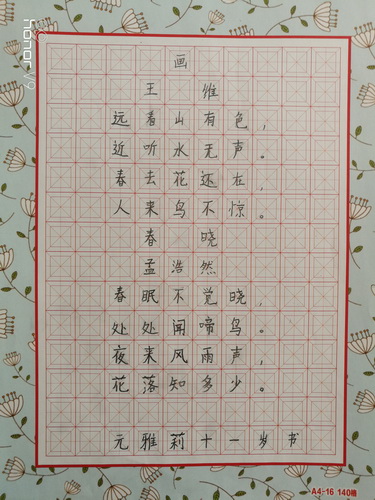 画
王 维
远看山有色,
近听水无声。
春去花还在,
人来鸟不惊。
春 晓
孟浩然
春眠不觉晓,
处处闻啼鸟。
夜来风雨声,
花落知多少。
元雅莉十一岁书
A4-16 140格
honor V9